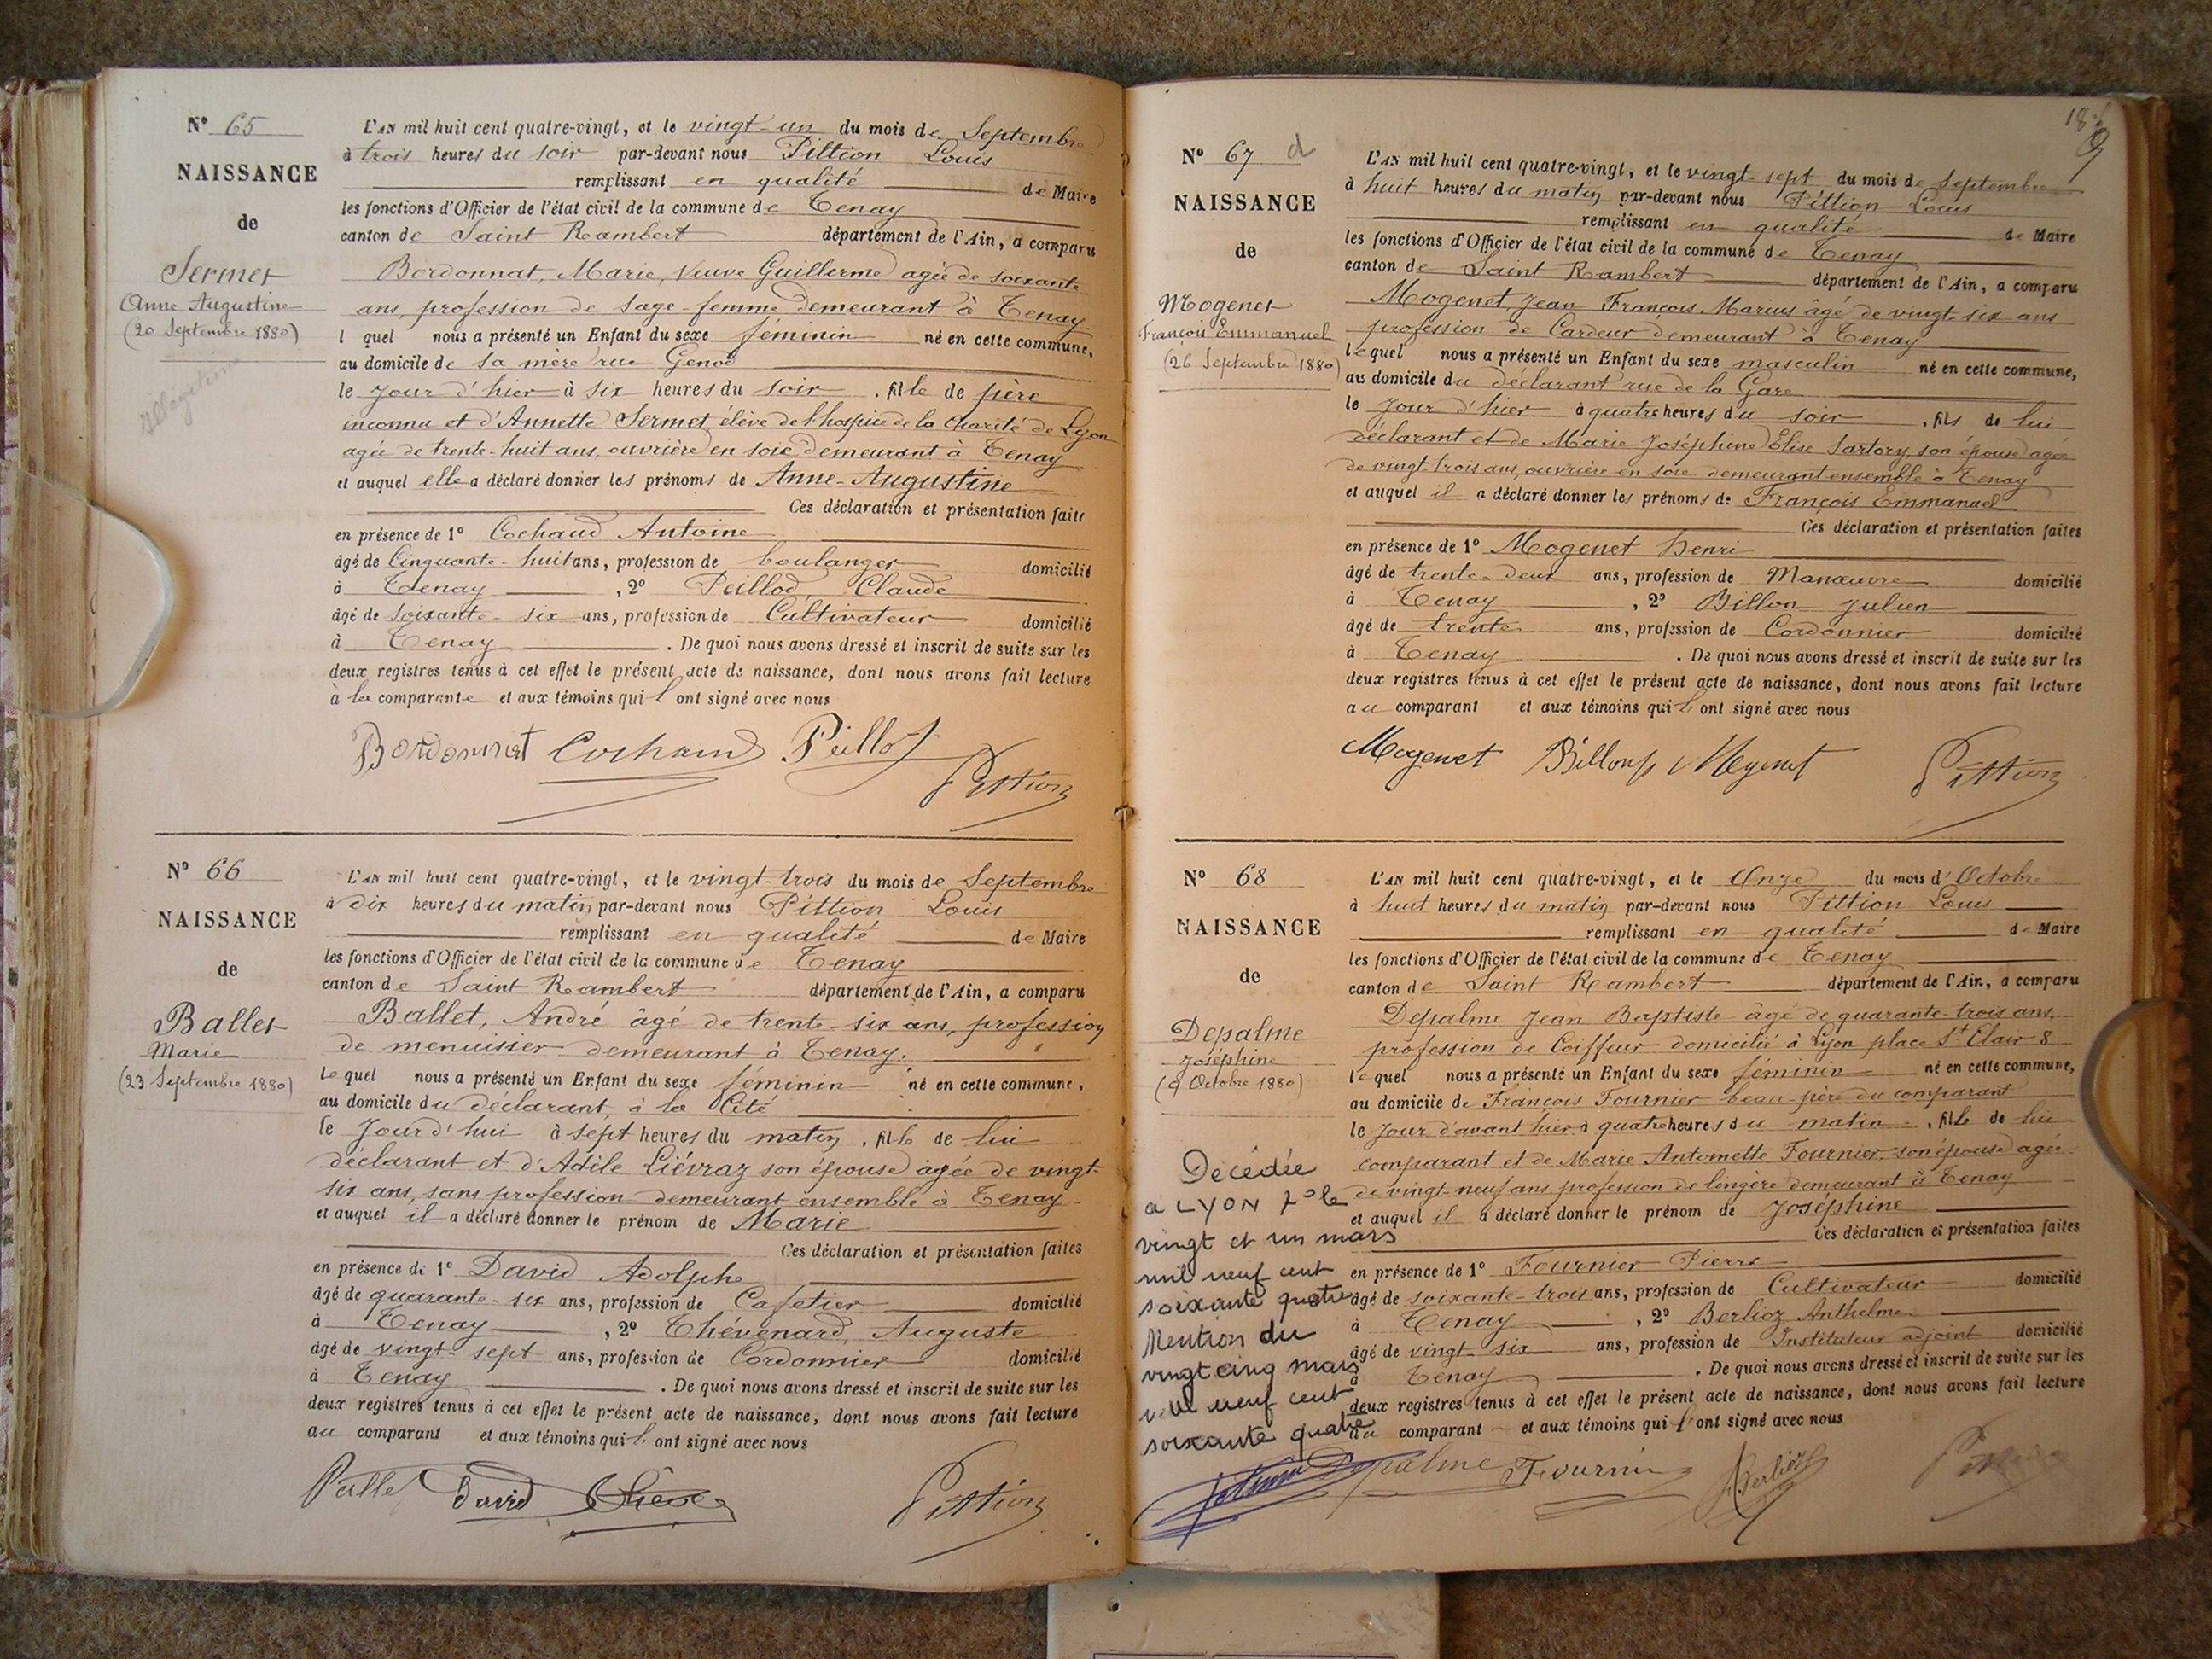 N° 65
NAISSANCE
de
Sermet
Anne Augustine
(20 Septembre 1880)
L'AN mil huit cent quatre-vingt, et le vingt-un du mois de Septembre
à trois heures du soir par-devant nous Pittion Louis
remplissant en qualité de Maire
les fonctions d'Officier de l'état civil de la commune de Tenay
canton de Saint Rambert département de l'Ain, a comparu
Bordonnat, Marie, Veuve Guillerme agée de soixante
ans, profession de sage-femme demeurant à Tenay
l quel nous a présenté un Enfant du sexe féminin né en cette commune,
au domicile de sa mère rue
le jour d'hier à six heures du soir . fille de père
inconnu et d'Annette Sermet, élève de l'hospice de la Charité de Lyon
agée de trente-huit ans, ouvrière en soie demeurant à Tenay
et auquel elle a déclaré donner les prénoms de Anne-Augustine
Ces déclaration et présentation faite
en présence de 1° Cochaud Antoine
âgé de Cinquante-huit ans, profession de boulanger domicilié
à Tenay , 2° Peillod, Claude
âgé de soixante-six ans, profession de Cultivateur domicilié
à Tenay . De quoi nous avons dressé et inscrit de suite sur les
deux registres tenus à cet effet le présent acte de naissance, dont nous avons fait lecture
à la comparante et aux témoins qui l'ont signé avec nous
Bordonnat Cochaud Peillod
Pittion
N° 66
NAISSANCE
de
Ballet
Marie
(23 Septembre 1880)
L'AN mil huit cent quatre-vingt, et le vingt-trois du mois de Septembre
à dix heures du matin par-devant nous Pittion Louis
remplissant en qualité de Maire
les fonctions d'Officier de l'état civil de la commune de Tenay
canton de Saint Rambert département de l'Ain, a comparu
Ballet, André âgé de trente-six ans, profession
de menuisier demeurant à Tenay.
lequel nous a présenté un Enfant du sexe féminin né en cette commune,
au domicile du déclarant, à la Cité
le jourd'hui à sept heures du matin . fille de lui
déclarant et d'Adèle Liévraz son épouse agée de vingt-
six ans, sans profession demeurant ensemble à Tenay
et auquel il a déclaré donner le prénom de Marie
Ces déclaration et présentation faites
en présence de 1° David Adolphe
âgé de quarante-six ans, profession de Cafetier domicilié
à Tenay , 2° Thévenard, Auguste
âgé de vingt-sept ans, profession de Cordonnier domicilié
à Tenay . De quoi nous avons dressé et inscrit de suite sur les
deux registres tenus à cet effet le présent acte de naissance, dont nous avons fait lecture
au comparant et aux témoins qui l'ont signé avec nous
Ballet David
Pittion
N° 67 d
NAISSANCE
de
Mogenet
François Emmanuel
(26 Septembre 1880)
L'AN mil huit cent quatre-vingt, et le vingt-sept du mois de Septembre
à huit heures du matin par-devant nous Pittion Louis
remplissant en qualité de Maire
les fonctions d'Officier de l'état civil de la commune de Tenay
canton de Saint Rambert département de l'Ain, a comparu
Mogenet, Jean François Marius âgé de vingt six ans
profession de Cardeur demeurant à Tenay
lequel nous a présenté un Enfant du sexe masculin né en cette commune,
au domicile du déclarant rue de la Gare
le jour d'hier à quatre heures du soir , fils de lui
déclarant et de Marie Joséphine Elise Sartory, son épouse agée
de vingt trois ans, ouvrière en soie demeurant ensemble à Tenay
et auquel il a déclaré donner les prénoms de François Emmanuel
Ces déclaration et présentation faites
en présence de 1° Mogenet henri
âgé de trente-deux ans, profession de Manœuvre domicilié
à Tenay , 2° Billon Julien
âgé de trente ans, profession de Cordonnier domicilié
à Tenay . De quoi nous avons dressé et inscrit de suite sur les
deux registres tenus à cet effet le présent acte de naissance, dont nous avons fait lecture
au comparant et aux témoins qui l'ont signé avec nous
Mogenet Billon Mogenet
Pittion
N° 68
NAISSANCE
de
Depalme
Joséphine
(9 Octobre 1880)
Décédée
à LYON 7° le
vingt et un mars
mil neuf cent
soixante quatre
Mention du
vingt cinq mars
mil neuf cent
soixante quatre
L'AN mil huit cent quatre-vingt, et le Onze du mois d'Octobre
à huit heures du matin par-devant nous Pittion Louis
remplissant en qualité de Maire
les fonctions d'Officier de l'état civil de la commune de Tenay
canton de Saint Rambert département de l'Ain, a comparu
Depalme Jean Baptiste âgé de quarante-trois ans,
profession de Coiffeur domicilié à Lyon place St Clair 8
lequel nous a présenté un Enfant du sexe féminin né en cette commune,
au domicile de François Fournier beau-père du comparant
le jour d'avant hier à quatre heures du matin , fille de lui
comparant et de Marie-Antoinette Fournier, son épouse agée
de vingt-neuf ans profession de lingère demeurant à Tenay
et auquel il a déclaré donner le prénom de Joséphine
Ces déclaration et présentation faites
en présence de 1° Fournier Pierre
âgé de soixante-trois ans, profession de Cultivateur domicilié
à Tenay , 2° Berlioz Anthelme
âgé de vingt-six ans, profession de Instituteur adjoint domicilié
à Tenay . De quoi nous avons dressé et inscrit de suite sur les
deux registres tenus à cet effet le présent acte de naissance, dont nous avons fait lecture
au comparant et aux témoins qui l'ont signé avec nous
Depalme Fournier Berlioz Pittion